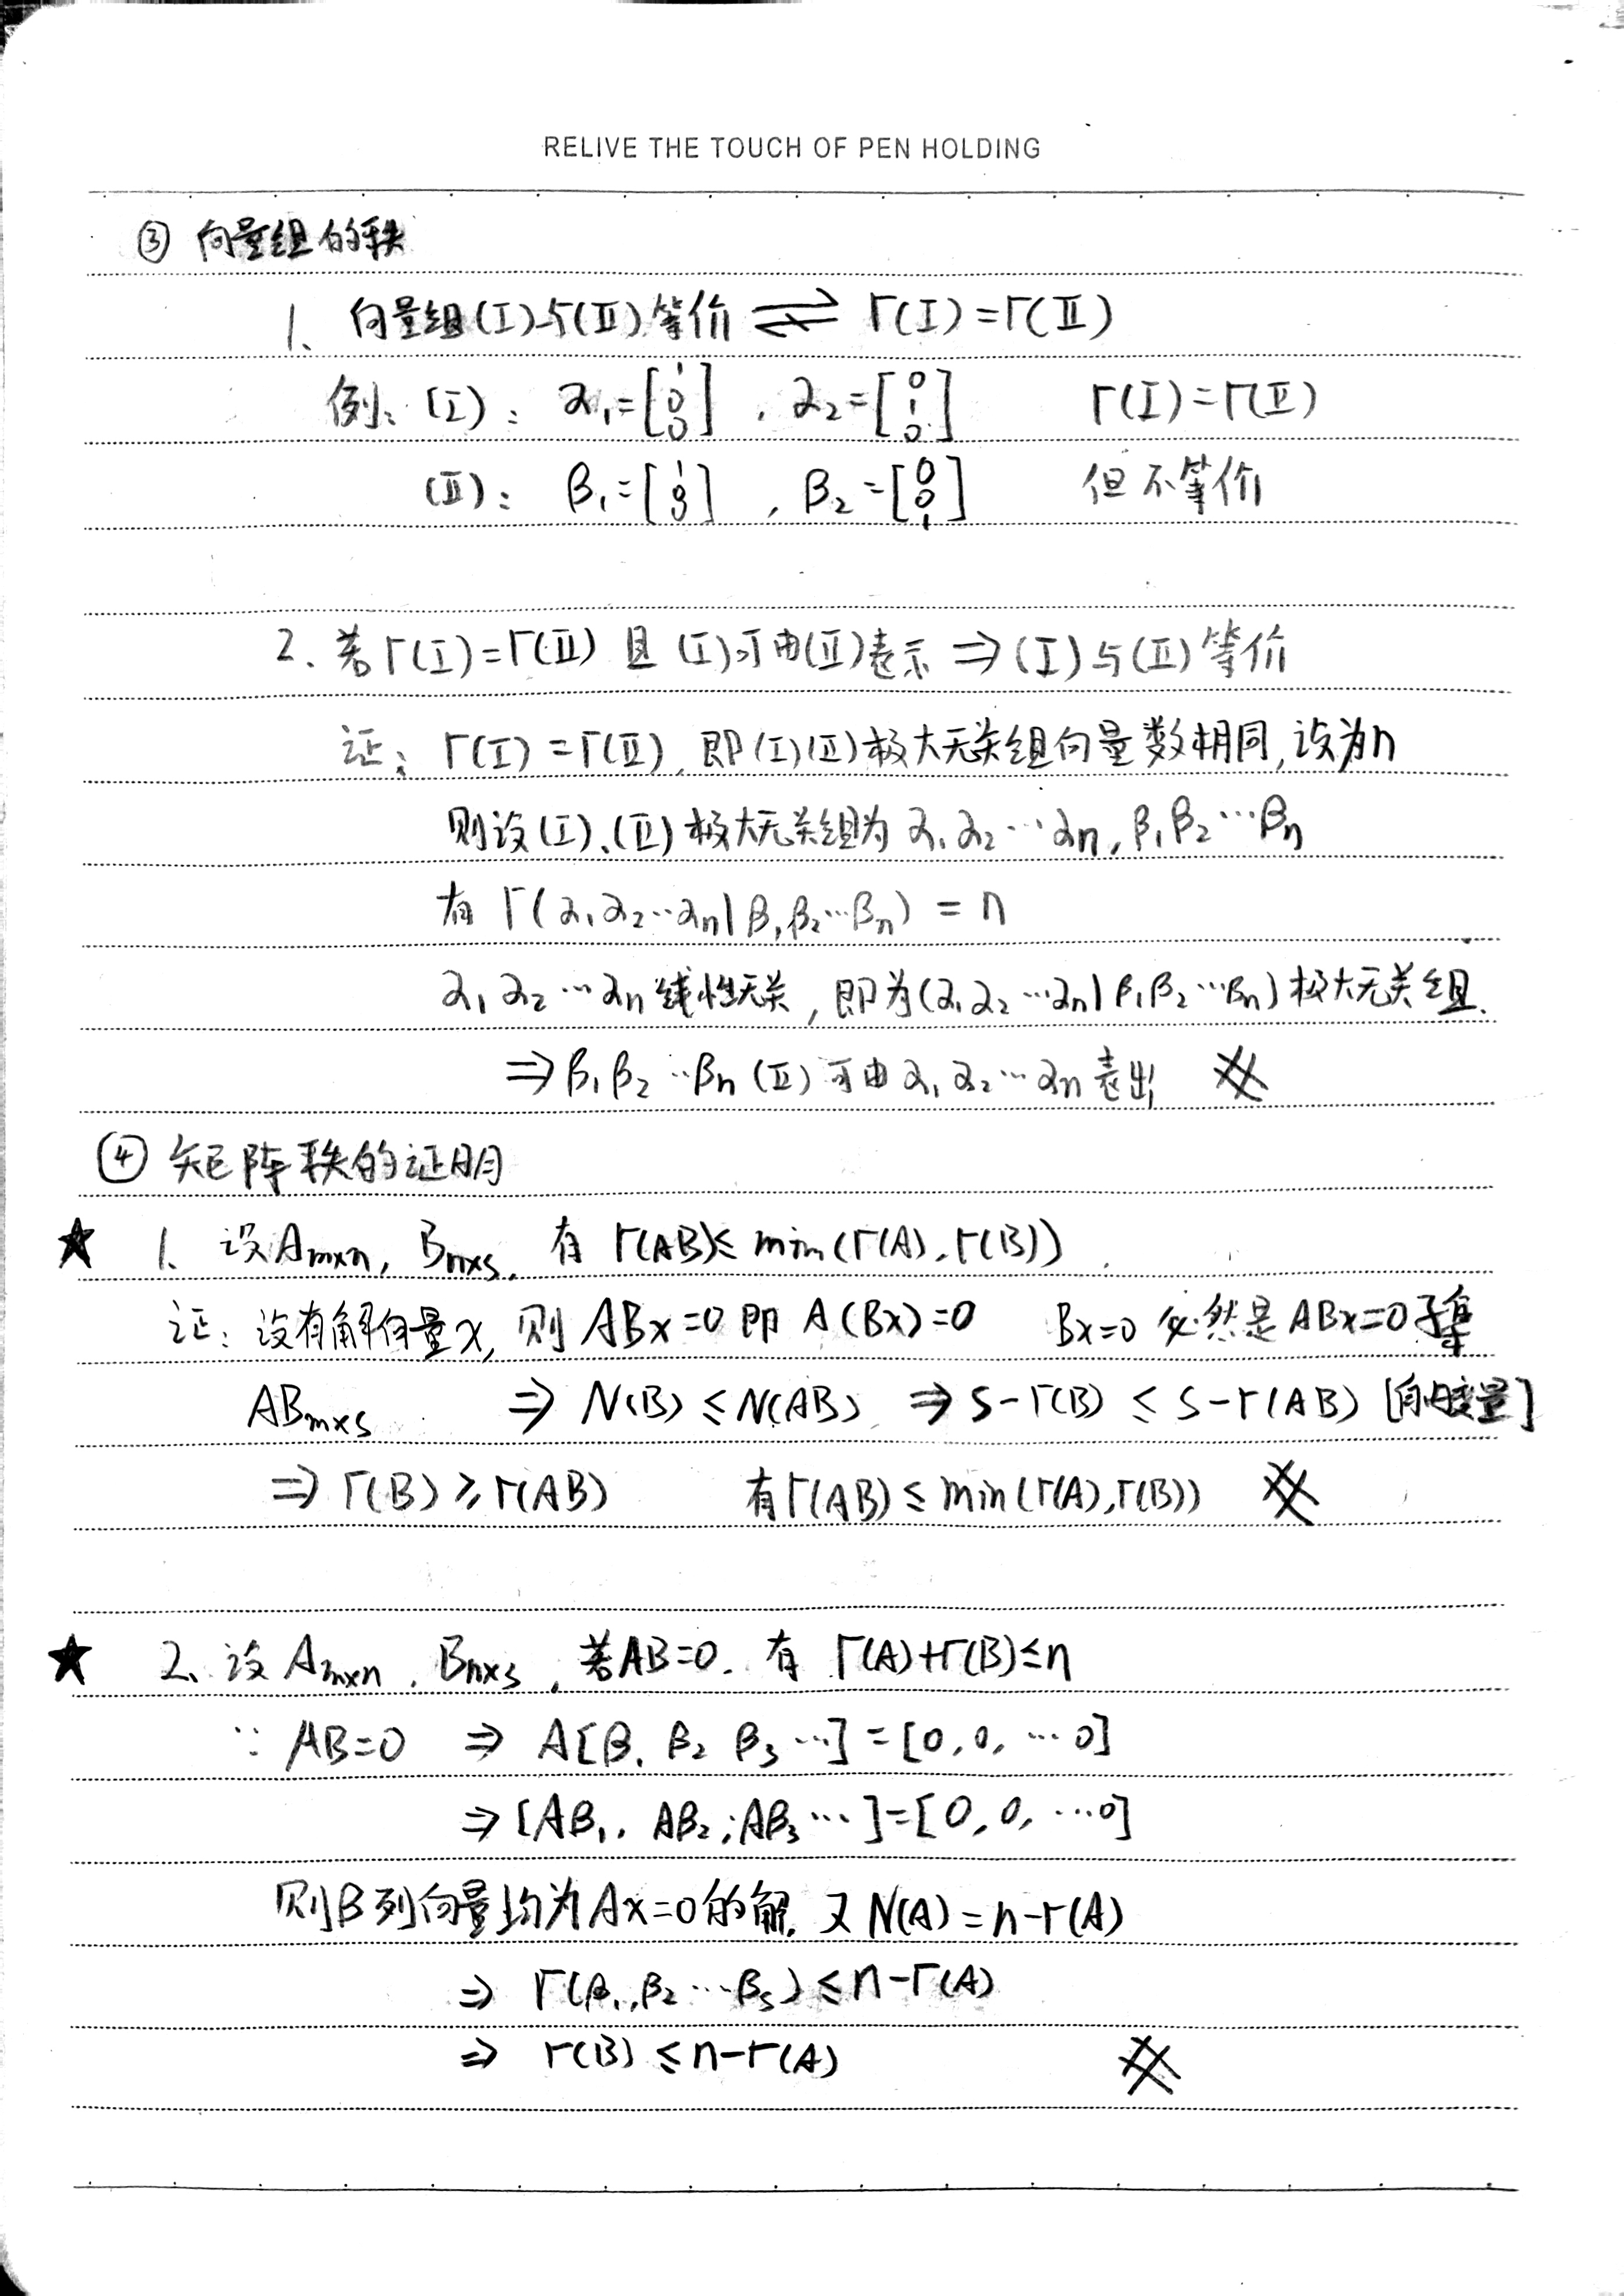 RELIVE THE TOUCH OF PEN HOLDING
③ 向量组的秩
1、向量组(Ⅰ)与(Ⅱ)等价 ⇌ r(Ⅰ)=r(Ⅱ)
例: (Ⅰ): α₁=[1 0 0], α₂=[0 1 0] r(Ⅰ)=r(Ⅱ)
(Ⅱ): β₁=[1 0 0], β₂=[0 0 1] 但不等价
2、若r(Ⅰ)=r(Ⅱ) 且 (Ⅰ)可由(Ⅱ)表示 ⇒ (Ⅰ)与(Ⅱ)等价
证: r(Ⅰ)=r(Ⅱ), 即(Ⅰ)(Ⅱ)极大无关组向量数相同, 设为n
则设(Ⅰ)、(Ⅱ)极大无关组为 α₁α₂⋯αn, β₁β₂⋯βn
有 r(α₁α₂⋯αn|β₁β₂⋯βn) = n
α₁α₂⋯αn线性无关, 即为(α₁α₂⋯αn|β₁β₂⋯βn)极大无关组.
⇒ β₁β₂⋯βn (Ⅱ) 可由 α₁α₂⋯αn 表出 #
④ 矩阵秩的证明
★ 1. 设Am×n, Bn×s, 有 r(AB)≤min(r(A), r(B))
证: 设有解向量x, 则 ABx=0 即 A(Bx)=0 Bx=0 必然是 ABx=0子集
ABm×s ⇒ N(B)≤N(AB) ⇒ s-r(B) ≤ s-r(AB) [自由变量]
⇒ r(B)≥r(AB) 有r(AB)≤min(r(A),r(B)) #
★ 2、设Am×n, Bn×s, 若AB=0. 有 r(A)+r(B)≤n
∵ AB=0 ⇒ A[β₁ β₂ β₃⋯]=[0,0,⋯0]
⇒ [Aβ₁, Aβ₂, Aβ₃⋯]=[0,0,⋯0]
则B列向量均为Ax=0的解, 又N(A)=n-r(A)
⇒ r(β₁,β₂⋯βs)≤n-r(A)
⇒ r(B)≤n-r(A) #